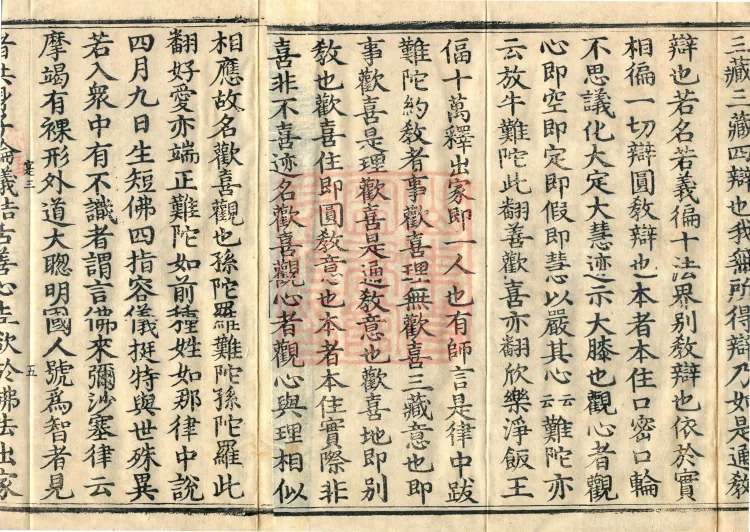 三藏三藏四辯也我無所得辯乃如是通教
辯也若名若義徧十法界別教辯也依於實
相徧一切辯圓教辯也本者本住口密口輪
不思議化大定大慧迹示大膝也觀心者觀
心即空即定即假即慧以嚴其心云云難陀亦
云放牛難陀此翻善歡喜亦翻欣樂淨飯王
偪十萬釋出家即一人也有師言是律中跋
難陀約教者事歡喜理無歡喜三藏意也即
事歡喜是理歡喜是通教意也歡喜地即別
教也歡喜住即圓教意也本者本住實際非
喜非不喜迹名歡喜觀心者觀心與理相似
相應故名歡喜觀也孫陀羅難陀孫陀羅此
翻好愛亦端正難陀如前種姓如那律中說
四月九日生短佛四指容儀挺特與世殊異
若入衆中有不識者謂言佛來彌沙塞律云
摩竭有裸形外道大聰明國人號爲智者見
三
五
論義結舌善心生欲於佛法出家